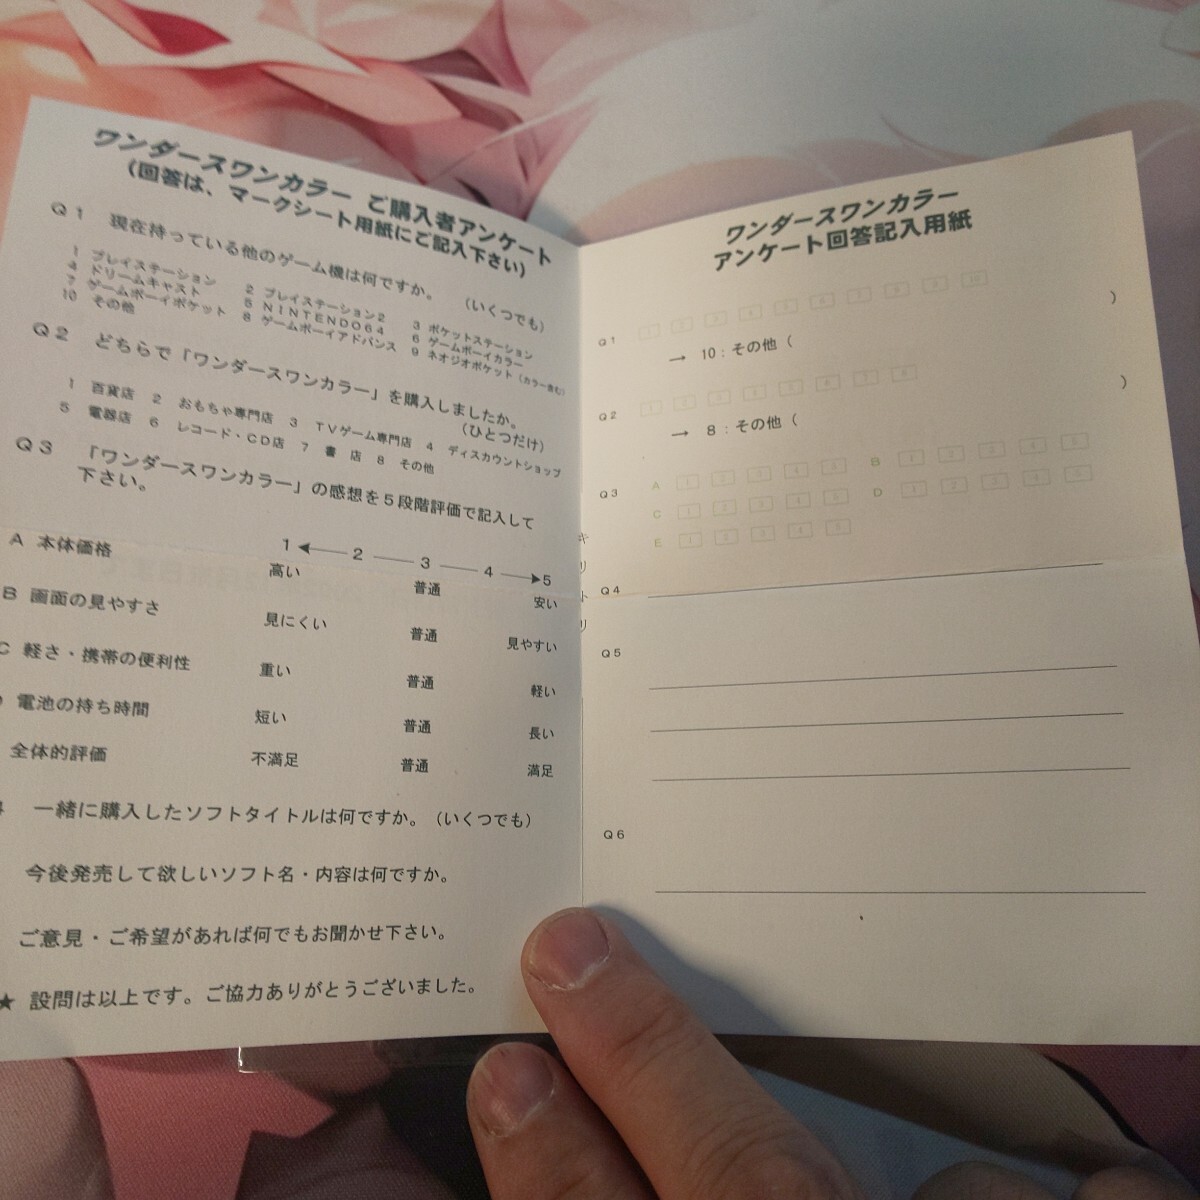 ワンダースワンカラー ご購入者アンケート
(回答は、マークシート用紙にご記入下さい)
Q1 現在持っている他のゲーム機は何ですか。 (いくつでも)
1 プレイステーション 2 プレイステーション2 3 ポケットステーション
4 ドリームキャスト 5 NINTENDO64 6 ゲームボーイカラー
7 ゲームボーイポケット 8 ゲームボーイアドバンス 9 ネオジオポケット(カラー含む)
10 その他
Q2 どちらで「ワンダースワンカラー」を購入しましたか。
(ひとつだけ)
1 百貨店 2 おもちゃ専門店 3 TVゲーム専門店 4 ディスカウントショップ
5 電器店 6 レコード・CD店 7 書 店 8 その他
Q3 「ワンダースワンカラー」の感想を5段階評価で記入して
下さい。
1 ◀── 2 ── 3 ── 4 ──▶ 5
A 本体価格 高い 普通 安い
B 画面の見やすさ 見にくい 普通 見やすい
C 軽さ・携帯の便利性 重い 普通 軽い
電池の持ち時間 短い 普通 長い
全体的評価 不満足 普通 満足
一緒に購入したソフトタイトルは何ですか。(いくつでも)
今後発売して欲しいソフト名・内容は何ですか。
ご意見・ご希望があれば何でもお聞かせ下さい。
★ 設問は以上です。ご協力ありがとうございました。
キリトリ
ワンダースワンカラー
アンケート回答記入用紙
Q1 1 2 3 4 5 6 7 8 9 10
→ 10:その他( )
Q2 1 2 3 4 5 6 7 8
→ 8:その他( )
Q3 A 1 2 3 4 5 B 1 2 3 4 5
C 1 2 3 4 5 D 1 2 3 4 5
E 1 2 3 4 5
Q4
Q5
Q6